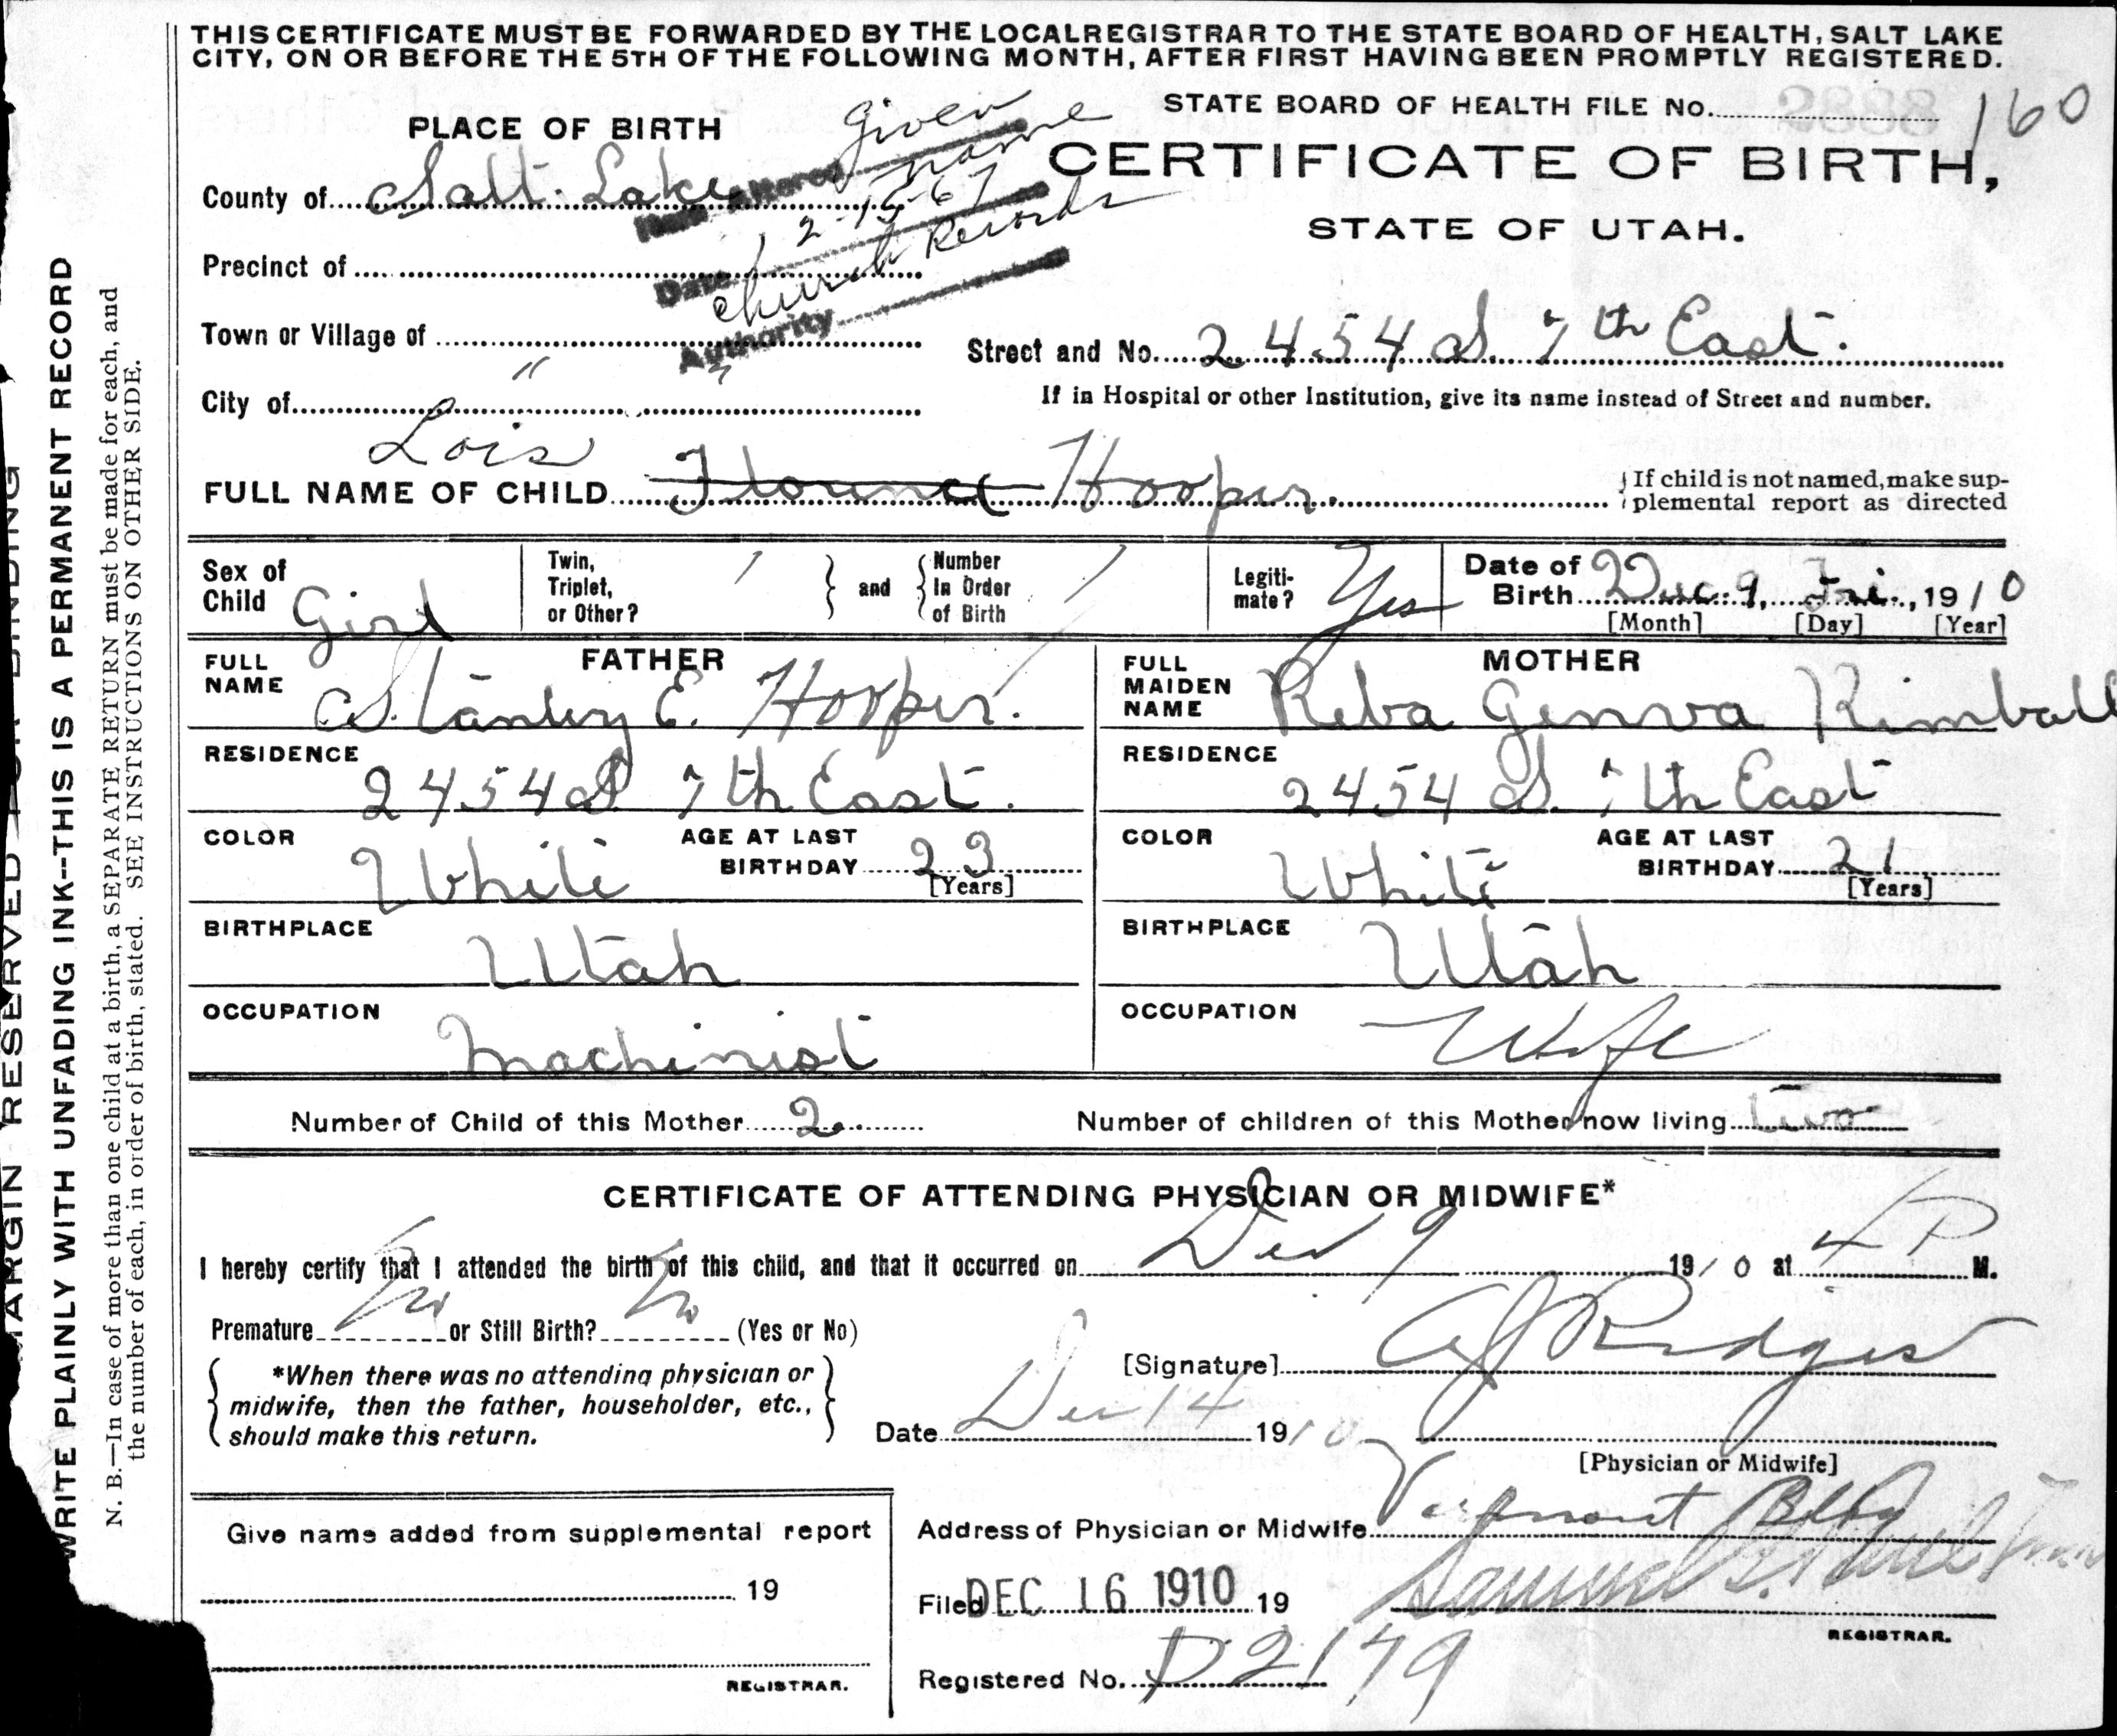 THIS CERTIFICATE MUST BE FORWARDED BY THE LOCAL REGISTRAR TO THE STATE BOARD OF HEALTH, SALT LAKE
CITY, ON OR BEFORE THE 5TH OF THE FOLLOWING MONTH, AFTER FIRST HAVING BEEN PROMPTLY REGISTERED.
STATE BOARD OF HEALTH FILE No. 160
PLACE OF BIRTH
CERTIFICATE OF BIRTH,
STATE OF UTAH.
given name
Altered
Date 12-15-67
Church Records
Authority
County of Salt Lake
Precinct of
Town or Village of
Street and No. 2454 S. 7th East.
City of "
If in Hospital or other Institution, give its name instead of Street and number.
Lois
FULL NAME OF CHILD Florence Hooper.
If child is not named, make sup-
plemental report as directed
Sex of Child Girl
Twin, Triplet, or Other? 1
and
Number In Order of Birth 1
Legiti-mate? Yes
Date of Birth Dec. 9, Fri., 1910
[Month] [Day] [Year]
FATHER
FULL NAME Stanley E. Hooper.
MOTHER
FULL MAIDEN NAME Reba Genva Kimball
RESIDENCE 2454 S 7th East.
RESIDENCE 2454 S. 7th East
COLOR White
AGE AT LAST BIRTHDAY 23 [Years]
COLOR White
AGE AT LAST BIRTHDAY 21 [Years]
BIRTHPLACE Utah
BIRTHPLACE Utah
OCCUPATION Machinist
OCCUPATION Wife
Number of Child of this Mother 2
Number of children of this Mother now living two
CERTIFICATE OF ATTENDING PHYSICIAN OR MIDWIFE*
I hereby certify that I attended the birth of this child, and that it occurred on Dec 9 1910 at 4 P M.
Premature No or Still Birth? No (Yes or No)
*When there was no attending physician or
midwife, then the father, householder, etc.,
should make this return.
[Signature] Ridges
Date Dec 14 1910
[Physician or Midwife]
Address of Physician or Midwife Vermont Bldg
Give name added from supplemental report
19
REGISTRAR.
Filed DEC 16 1910 19
Samuel G.
REGISTRAR.
Registered No. D2179
MARGIN RESERVED FOR BINDING
WRITE PLAINLY WITH UNFADING INK--THIS IS A PERMANENT RECORD
N. B.—In case of more than one child at a birth, a SEPARATE RETURN must be made for each, and
the number of each, in order of birth, stated. SEE INSTRUCTIONS ON OTHER SIDE.